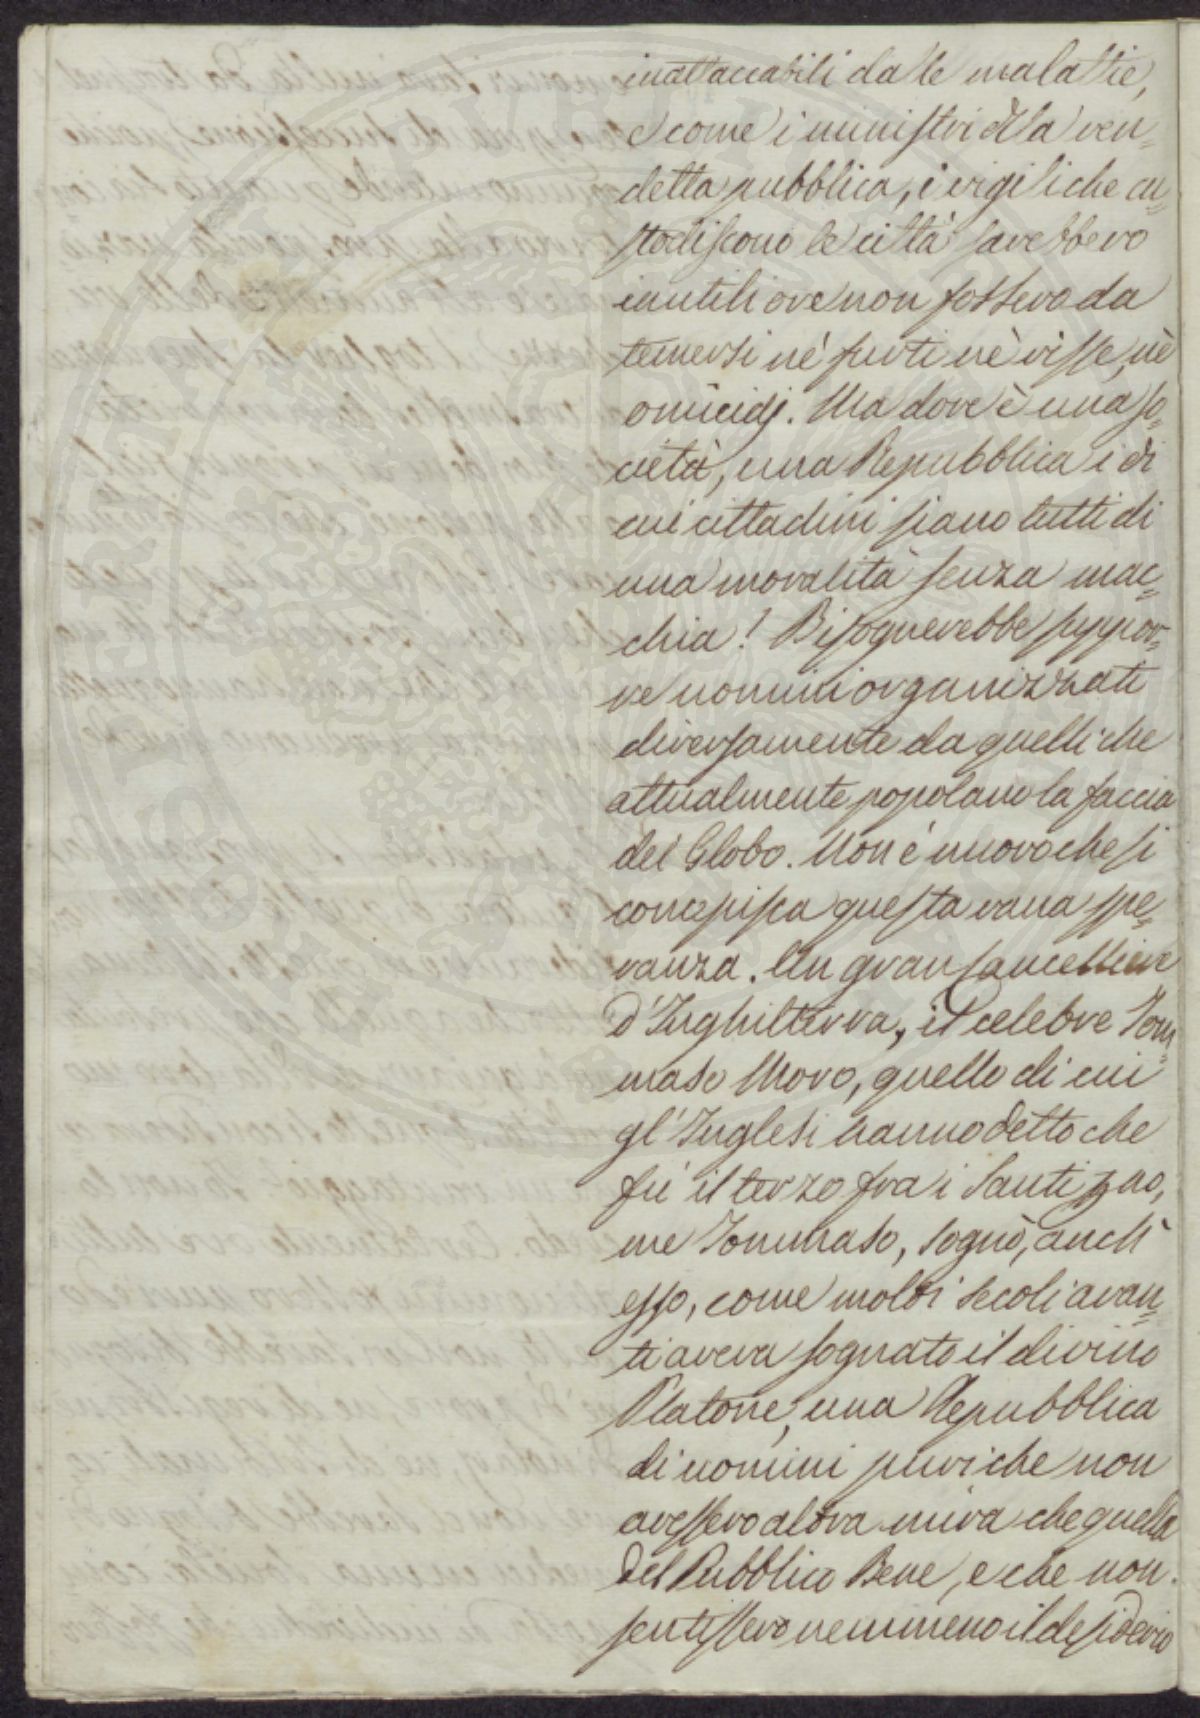 inattaccabili dalle malattie,
e come i ministri della ven=
detta pubblica, i vigili che cu=
stodiscono le città sarebbero
inutili ove non fossero da
temersi nè furti nè risse, nè
omicidj. Ma dove è una so=
cietà, una Repubblica i di
cui cittadini siano tutti di
una moralità senza mac=
chia! Bisognerebbe suppor=
re uomini organizzati
diversamente da quelli che
attualmente popolano la faccia
del Globo. Non è nuovo che si
concepisca questa vana spe=
ranza. Un gran Cancelliere
d'Inghilterra, il celebre Tom=
maso Moro, quello di cui
gl'Inglesi hanno detto che
fù il terzo fra i Santi di no,
me Tommaso, sognò, anch'
esso, come molti secoli avan=
ti aveva sognato il divino
Platone, una Repubblica
di uomini puri che non
avessero altra mira che quella
del Pubblico Bene, e che non
sentissero nemmeno il desiderio